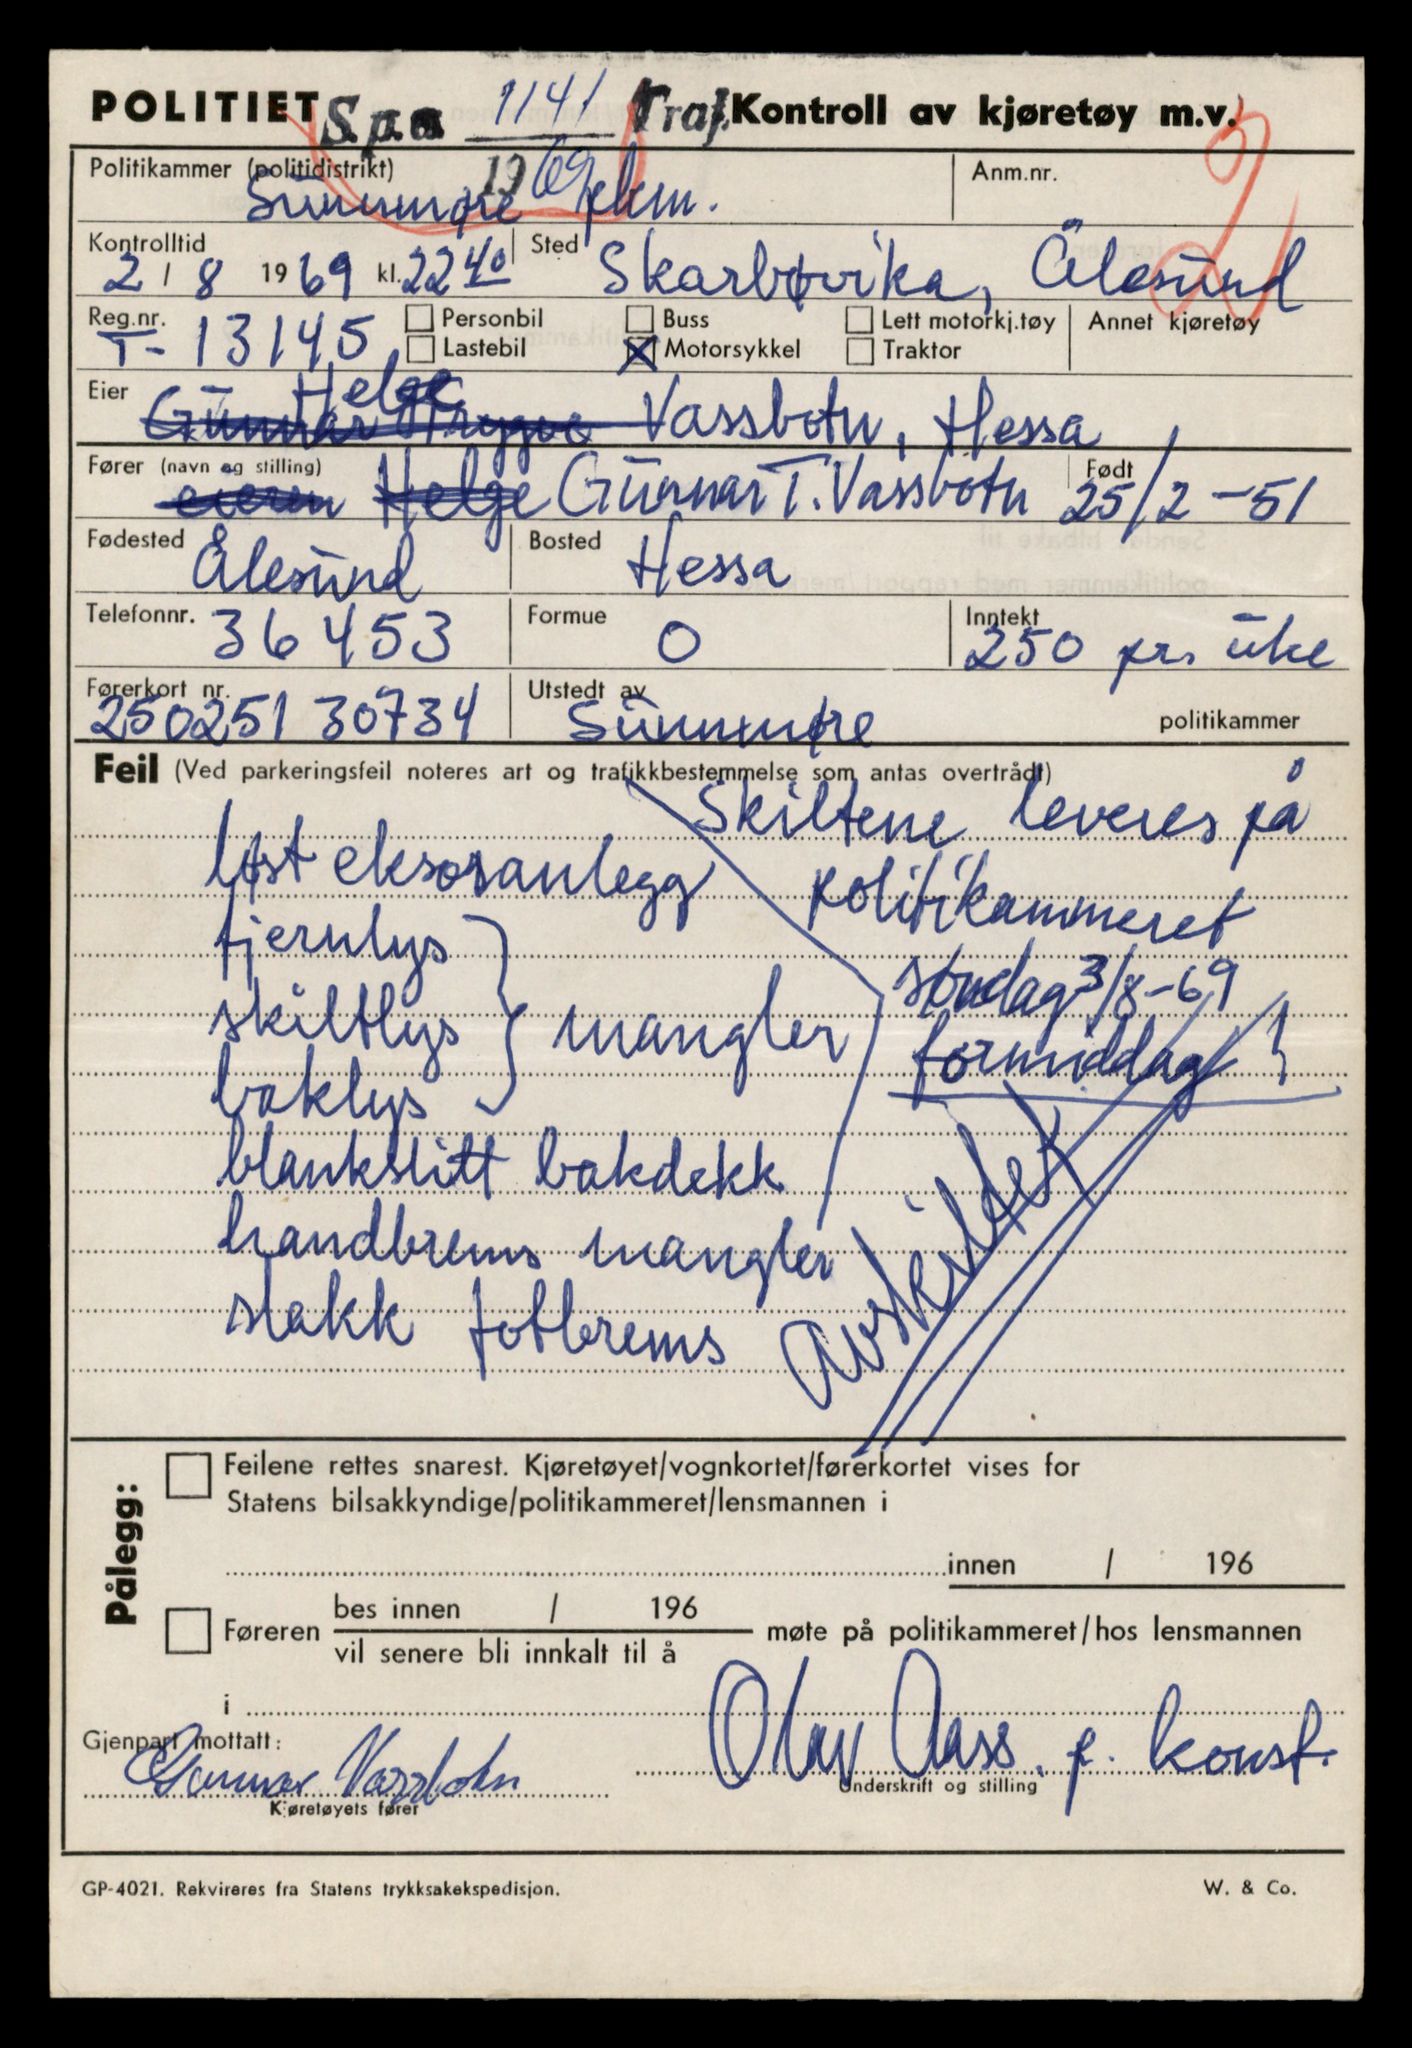 POLITIET S.p.a. 1141 Traf. Kontroll av kjøretøy m.v.
1969
Politikammer (politidistrikt) Sunnmøre pkm.
Anm.nr.
Kontrolltid 2/8 1969 kl. 22 40 Sted Skarbøvika, Ålesund
Reg.nr. T-13145
Personbil Buss Lett motorkj.tøy Annet kjøretøy
Lastebil X Motorsykkel Traktor
Helge
Eier Gunnar Trygve Vassbotn, Hessa
Fører (navn og stilling) eieren Helge Gunnar T. Vassbotn Født 25/2-51
Fødested Ålesund Bosted Hessa
Telefonnr. 36453 Formue 0 Inntekt 250 pr. uke
Førerkort nr. 250251 30734 Utstedt av Sunnmøre politikammer
Feil (Ved parkeringsfeil noteres art og trafikkbestemmelse som antas overtrådt)
Skiltene leveres på
politikammeret
søndag 3/8-69
formiddag!
løst eksosanlegg
fjernlys
skiltlys } mangler
baklys
blankslitt bakdekk
handbrems mangler
slakk fotbrems
Avskiltet
Pålegg:
Feilene rettes snarest. Kjøretøyet/vognkortet/førerkortet vises for
Statens bilsakkyndige/politikammeret/lensmannen i
innen / 196
Føreren bes innen / 196
vil senere bli innkalt til å
møte på politikammeret/hos lensmannen
i
Gjenpart mottatt:
Gunnar Vassbotn
Kjøretøyets fører
Olav Aass. p. konst.
Underskrift og stilling
GP-4021. Rekvireres fra Statens trykksakekspedisjon.
W. & Co.